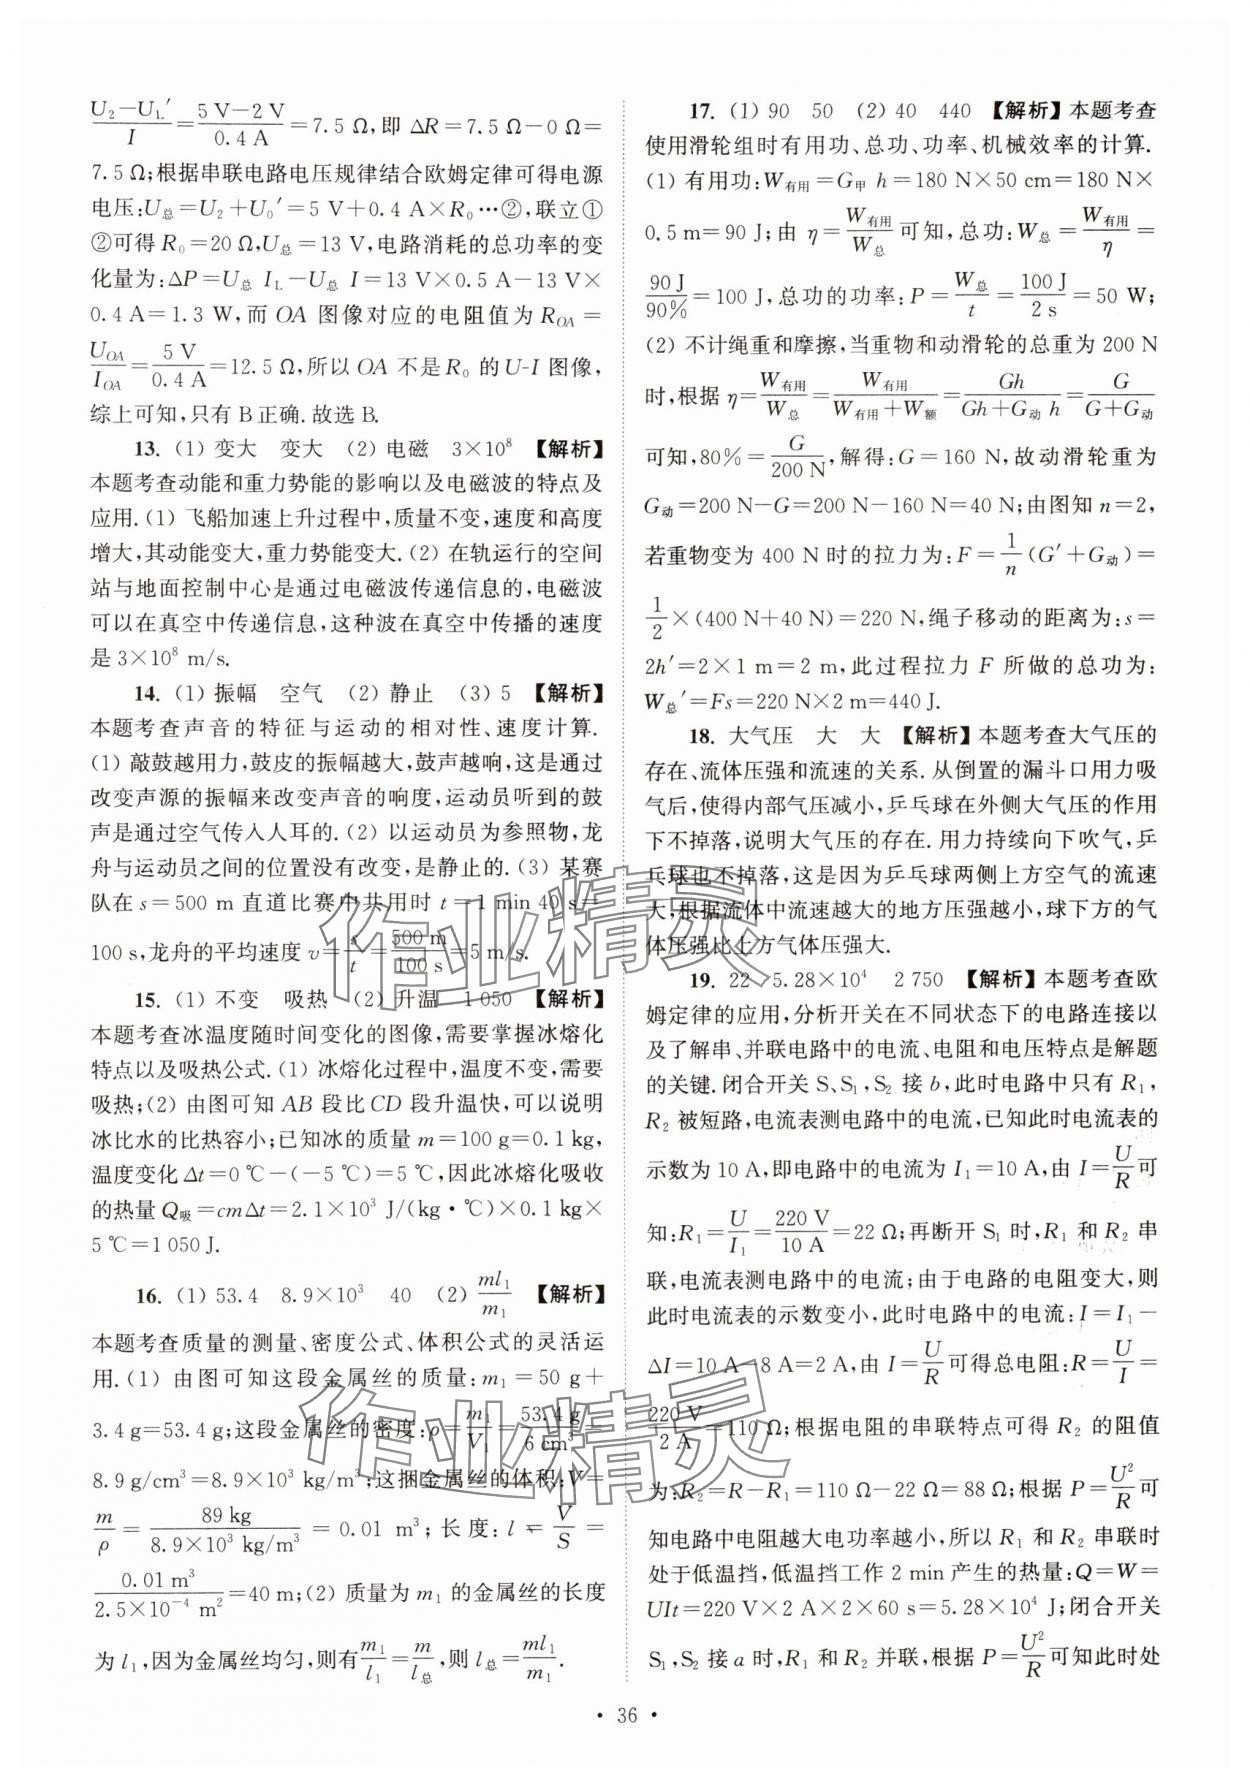 $\frac{U_2-U_L'}{I}=\frac{5\ V-2\ V}{0.4\ A}$=7.5 Ω,即 ΔR=7.5 Ω-0 Ω=
7.5 Ω;根据串联电路电压规律结合欧姆定律可得电源
电压:U总=U₂+U₀′=5 V+0.4 A×R₀…②,联立①
②可得 R₀=20 Ω,U总=13 V,电路消耗的总功率的变
化量为:ΔP=U总 I_L-U总 I=13 V×0.5 A-13 V×
0.4 A=1.3 W,而 OA 图像对应的电阻值为 R_{OA}=
$\frac{U_{OA}}{I_{OA}}=\frac{5\ V}{0.4\ A}$=12.5 Ω,所以 OA 不是 R₀ 的 U-I 图像,
综上可知,只有 B 正确.故选 B.
13. (1) 变大 变大 (2) 电磁 3×10⁸ 【解析】
本题考查动能和重力势能的影响以及电磁波的特点及
应用.(1) 飞船加速上升过程中,质量不变,速度和高度
增大,其动能变大,重力势能变大.(2) 在轨运行的空间
站与地面控制中心是通过电磁波传递信息的,电磁波
可以在真空中传递信息,这种波在真空中传播的速度
是 3×10⁸ m/s.
14. (1) 振幅 空气 (2) 静止 (3) 5 【解析】
本题考查声音的特征与运动的相对性、速度计算.
(1) 敲鼓越用力,鼓皮的振幅越大,鼓声越响,这是通过
改变声源的振幅来改变声音的响度,运动员听到的鼓
声是通过空气传入人耳的.(2) 以运动员为参照物,龙
舟与运动员之间的位置没有改变,是静止的.(3) 某赛
队在 s=500 m 直道比赛中共用时 t=1 min 40 s=
100 s,龙舟的平均速度 v=$\frac{s}{t}=\frac{500\ m}{100\ s}$=5 m/s.
15. (1) 不变 吸热 (2) 升温 1 050 【解析】
本题考查冰温度随时间变化的图像,需要掌握冰熔化
特点以及吸热公式.(1) 冰熔化过程中,温度不变,需要
吸热;(2) 由图可知 AB 段比 CD 段升温快,可以说明
冰比水的比热容小;已知冰的质量 m=100 g=0.1 kg,
温度变化 Δt=0 ℃-(-5 ℃)=5 ℃,因此冰熔化吸收
的热量 Q吸=cmΔt=2.1×10³ J/(kg·℃)×0.1 kg×
5 ℃=1 050 J.
16. (1) 53.4 8.9×10³ 40 (2) $\frac{ml_1}{m_1}$ 【解析】
本题考查质量的测量、密度公式、体积公式的灵活运
用.(1) 由图可知这段金属丝的质量:m₁=50 g+
3.4 g=53.4 g;这段金属丝的密度:ρ=$\frac{m_1}{V_1}=\frac{53.4\ g}{6\ cm^3}$=
8.9 g/cm³=8.9×10³ kg/m³;这捆金属丝的体积:V=
$\frac{m}{ρ}=\frac{89\ kg}{8.9×10^3\ kg/m^3}$=0.01 m³;长度:l=$\frac{V}{S}$=
$\frac{0.01\ m^3}{2.5×10^{-4}\ m^2}$=40 m;(2) 质量为 m₁ 的金属丝的长度
为 l₁,因为金属丝均匀,则有$\frac{m_1}{l_1}=\frac{m}{l_总}$,则 l总=$\frac{ml_1}{m_1}$.
17. (1) 90 50 (2) 40 440 【解析】本题考查
使用滑轮组时有用功、总功、功率、机械效率的计算.
(1) 有用功:W有用=G甲 h=180 N×50 cm=180 N×
0.5 m=90 J;由 η=$\frac{W_{有用}}{W_总}$可知,总功:W总=$\frac{W_{有用}}{η}$=
$\frac{90\ J}{90\%}$=100 J,总功的功率:P=$\frac{W_总}{t}=\frac{100\ J}{2\ s}$=50 W;
(2) 不计绳重和摩擦,当重物和动滑轮的总重为 200 N
时,根据 η=$\frac{W_{有用}}{W_总}=\frac{W_{有用}}{W_{有用}+W_额}=\frac{Gh}{Gh+G_动h}=\frac{G}{G+G_动}$
可知,80%=$\frac{G}{200\ N}$,解得:G=160 N,故动滑轮重为
G动=200 N-G=200 N-160 N=40 N;由图知 n=2,
若重物变为 400 N 时的拉力为:F=$\frac{1}{n}$(G′+G动)=
$\frac{1}{2}$×(400 N+40 N)=220 N,绳子移动的距离为:s=
2h′=2×1 m=2 m,此过程拉力 F 所做的总功为:
W总′=Fs=220 N×2 m=440 J.
18. 大气压 大 大 【解析】本题考查大气压的
存在、流体压强和流速的关系.从倒置的漏斗口用力吸
气后,使得内部气压减小,乒乓球在外侧大气压的作用
下不掉落,说明大气压的存在.用力持续向下吹气,乒
乓球也不掉落,这是因为乒乓球两侧上方空气的流速
大,根据流体中流速越大的地方压强越小,球下方的气
体压强比上方气体压强大.
19. 22 5.28×10⁴ 2 750 【解析】本题考查欧
姆定律的应用,分析开关在不同状态下的电路连接以
及了解串、并联电路中的电流、电阻和电压特点是解题
的关键.闭合开关 S、S₁,S₂ 接 b,此时电路中只有 R₁,
R₂ 被短路,电流表测电路中的电流,已知此时电流表的
示数为 10 A,即电路中的电流为 I₁=10 A,由 I=$\frac{U}{R}$可
知:R₁=$\frac{U}{I_1}=\frac{220\ V}{10\ A}$=22 Ω;再断开 S₁ 时,R₁ 和 R₂ 串
联,电流表测电路中的电流;由于电路的电阻变大,则
此时电流表的示数变小,此时电路中的电流:I=I₁-
ΔI=10 A-8 A=2 A,由 I=$\frac{U}{R}$可得总电阻:R=$\frac{U}{I}$=
$\frac{220\ V}{2\ A}$=110 Ω;根据电阻的串联特点可得 R₂ 的阻值
为:R₂=R-R₁=110 Ω-22 Ω=88 Ω;根据 P=$\frac{U^2}{R}$可
知电路中电阻越大电功率越小,所以 R₁ 和 R₂ 串联时
处于低温挡,低温挡工作 2 min 产生的热量:Q=W=
UIt=220 V×2 A×2×60 s=5.28×10⁴ J;闭合开关
S₁,S₂ 接 a 时,R₁ 和 R₂ 并联,根据 P=$\frac{U^2}{R}$可知此时处
· 36 ·
作业精灵
作业精灵